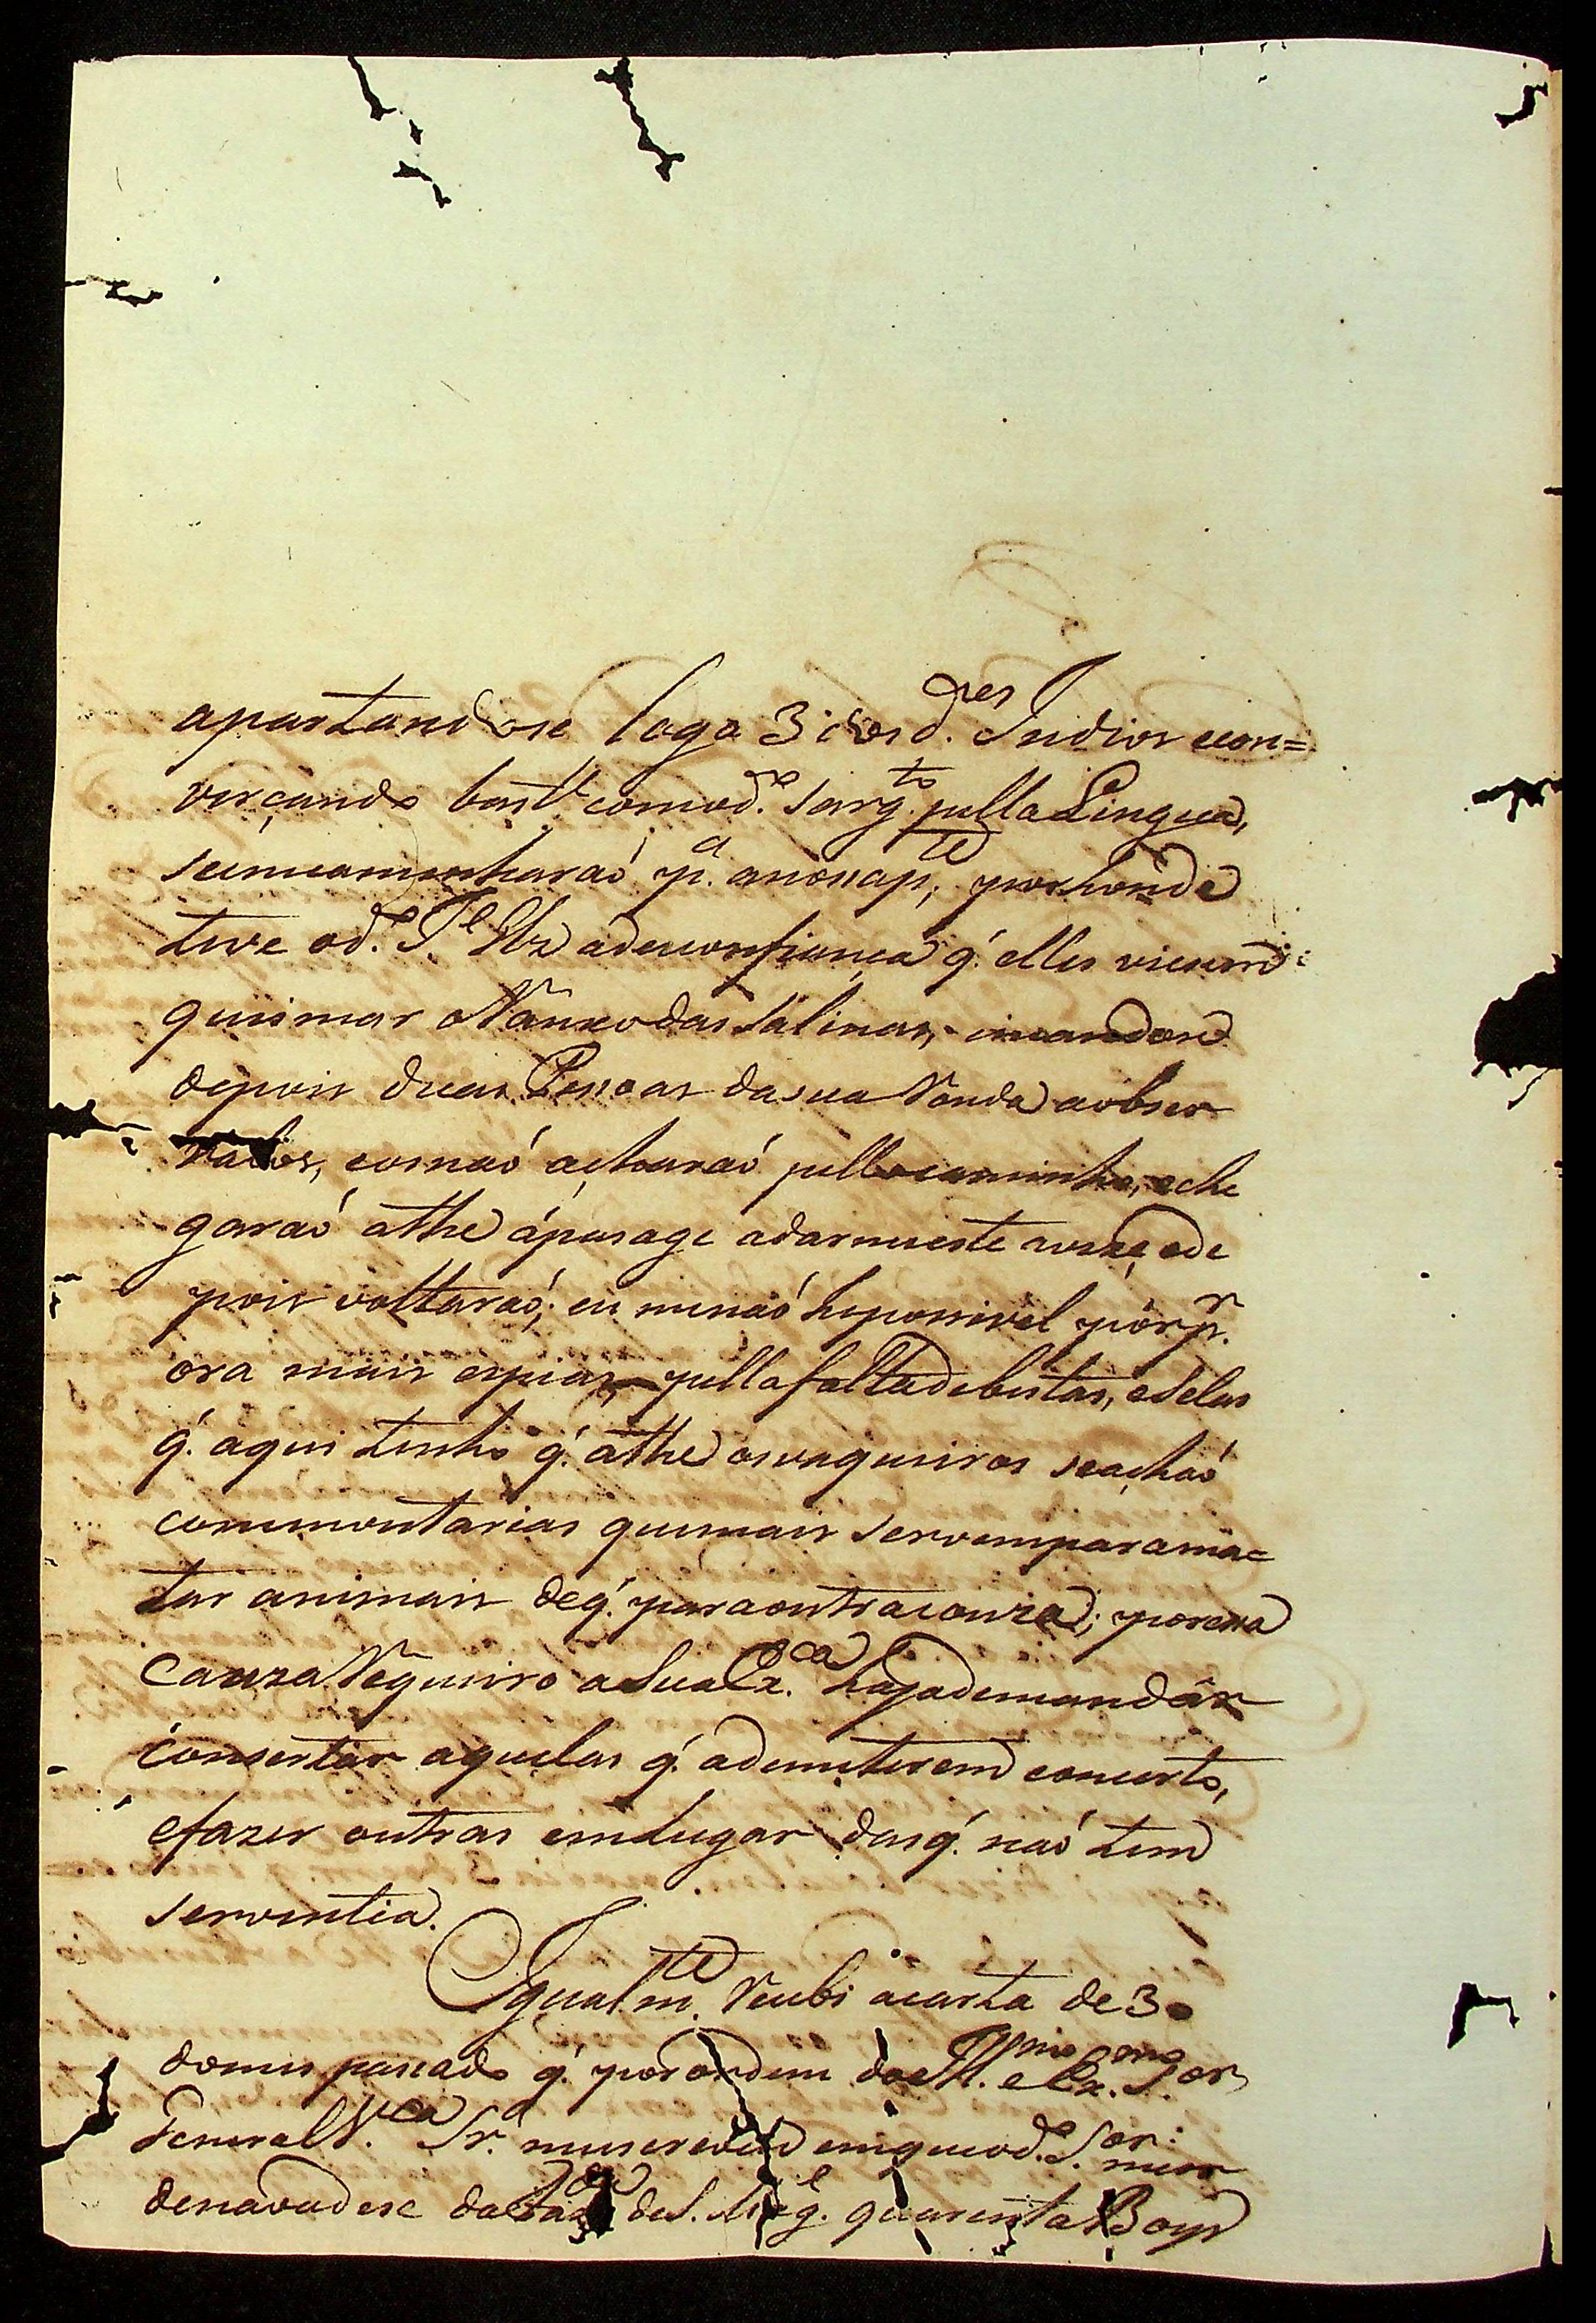 apartandose logo 3 dos d.res Indios econ=
verçando bast.e como d.o Sarg.to pella Lingua,
seencaminharaó p.a anosap.te, porhonde
teve o d.o T.e a desconfiança q́. elles viesem
queimar o Ranxo das Salinas,
depois duas Pesoas da sua Ronda a obser
valos, eos naó acharaó pello caminho, e che
garaó athe ápasage adarme este avizo, e de
pois voltaraó; eu menaó heposivel pòr p.r
ora mais espias, pella falta de bestas, e delas
q́. aqui tenho q́. athe os vaqueiros seachaó
com montarias que mais servem para ma=
tar animais de q́. para outra couza; por esa
cauza Requeiro a Sua Ex.ca haja de mandár
consertár aquelas q́. ademeterem concerto,
e fazer outras em Lugar das q́. naó tem
serventia.
Igualm.te Recebi acarta de 3
do mes pasado q́. por ordem do Ill.mo e Ex.mo S.or
General V.ca S.a me escreveu em que o d.o S.or me or
denava dese da Faz.da de S. Mig.l quarenta Boys